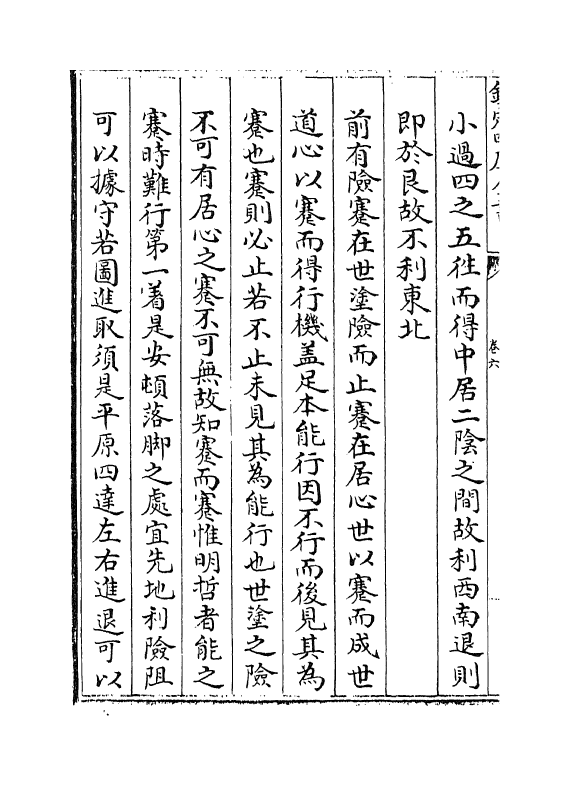 卷六
小過四之五徃而得中居二陰之間故利西南退則
即於艮故不利東北
前有險蹇在世塗險而止蹇在居心世以蹇而成世
道心以蹇而得行機盖足本能行因不行而後見其為
蹇也蹇則必止若不止未見其為能行也世塗之險
不可有居心之蹇不可無故知蹇而蹇惟明哲者能之
蹇時難行第一著是安頓落脚之處宜先地利險阻
可以據守若圖進取須是平原四達左右進退可以